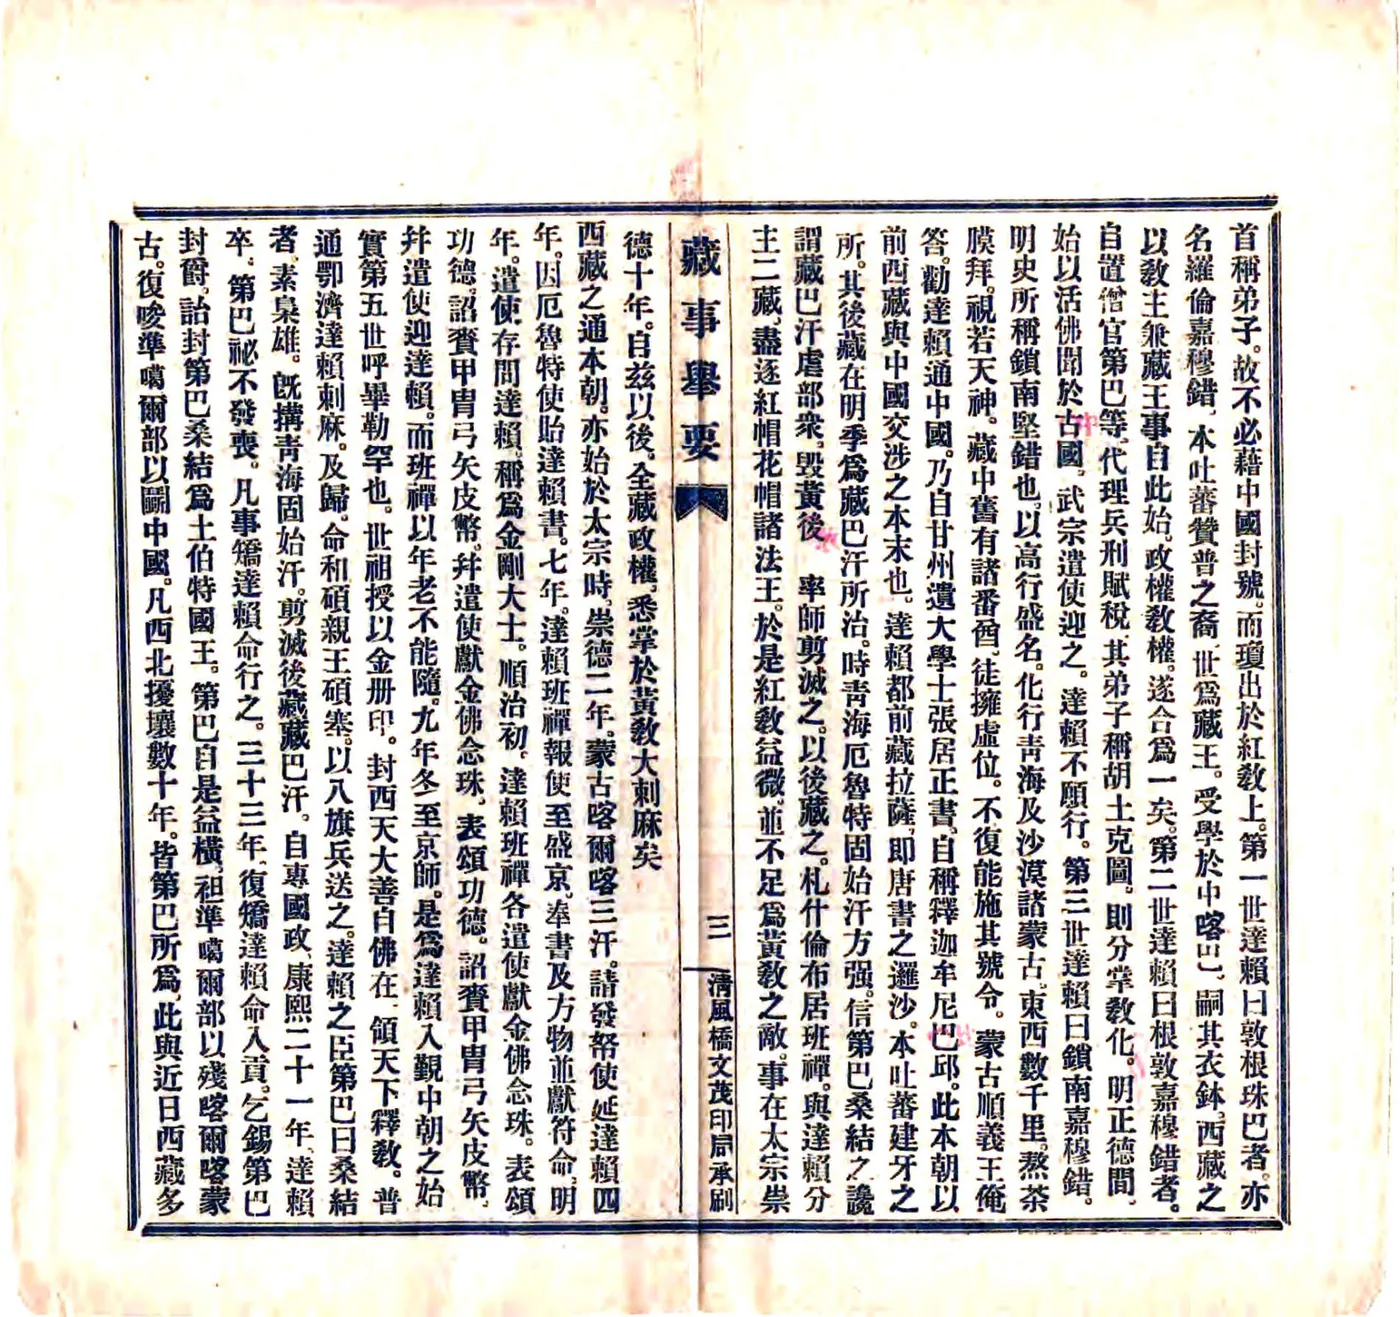 首稱弟子。故不必藉中國封號。而瓊出於紅敎上。第一世達賴曰敦根珠巴者。亦
名羅倫嘉穆錯、本吐蕃贊普之裔、世爲藏王。受學於中喀巴、嗣其衣鉢、西藏之
以敎主兼藏王事自此始。政權敎權。遂合爲一矣。第二世達賴曰根敦嘉穆錯者。
自置僧官第巴等、代理兵刑賦稅、其弟子稱胡土克圖。則分掌敎化。明正德間、
始以活佛聞於古國。武宗遣使迎之。達賴不願行。第三世達賴曰鎖南嘉穆錯。
明史所稱鎖南堅錯也。以高行盛名。化行靑海及沙漠諸蒙古。東西數千里。熬茶
膜拜。視若天神。藏中舊有諸番酋。徒擁虛位。不復能施其號令。蒙古順義王俺
答。勸達賴通中國。乃自甘州遺大學士張居正書。自稱釋迦牟尼巴邱。此本朝以
前西藏與中國交涉之本末也。達賴都前藏拉薩、即唐書之邏沙。本吐蕃建牙之
所。其後藏在明季爲藏巴汗所治。時靑海厄魯特固始汗方强。信第巴桑結之讒
謂藏巴汗虐部衆。毀黃後 率師剪滅之。以後藏之。札什倫布居班禪。與達賴分
主二藏。盡逐紅帽花帽諸法王。於是紅敎益微。並不足爲黃敎之敵。事在太宗崇
藏事舉要
三
淸風橋文茂印局承刷
德十年。自茲以後。全藏政權。悉掌於黃敎大剌麻矣
西藏之通本朝。亦始於太宗時。崇德二年。蒙古喀爾喀三汗。請發帑使延達賴四
年。因厄魯特使貽達賴書。七年。達賴班禪報使至盛京。奉書及方物並獻符命。明
年。遣使存問達賴。稱爲金剛大士。順治初。達賴班禪各遣使獻金佛念珠。表頌
功德。詔賚甲胄弓矢皮幣。幷遣使獻金佛念珠。表頌功德。詔賚甲胄弓矢皮幣、
幷遣使迎達賴。而班禪以年老不能隨。九年冬至京師。是爲達賴入覲中朝之始
實第五世呼畢勒罕也。世祖授以金册印。封西天大善自佛在、領天下釋敎。普
通鄂濟達賴剌麻。及歸。命和碩親王碩塞。以八旗兵送之。達賴之臣第巴曰桑結
者。素梟雄。旣搆靑海固始汗。剪滅後藏藏巴汗。自專國政、康熙二十一年、達賴
卒、第巴祕不發喪。凡事矯達賴命行之。三十三年、復矯達賴命入貢。乞錫第巴
封爵、詒封第巴桑結爲土伯特國王。第巴自是益橫、祖準噶爾部以殘喀爾喀蒙
古。復唆準噶爾部以鬬中國。凡西北擾壤數十年。皆第巴所爲、此與近日西藏多